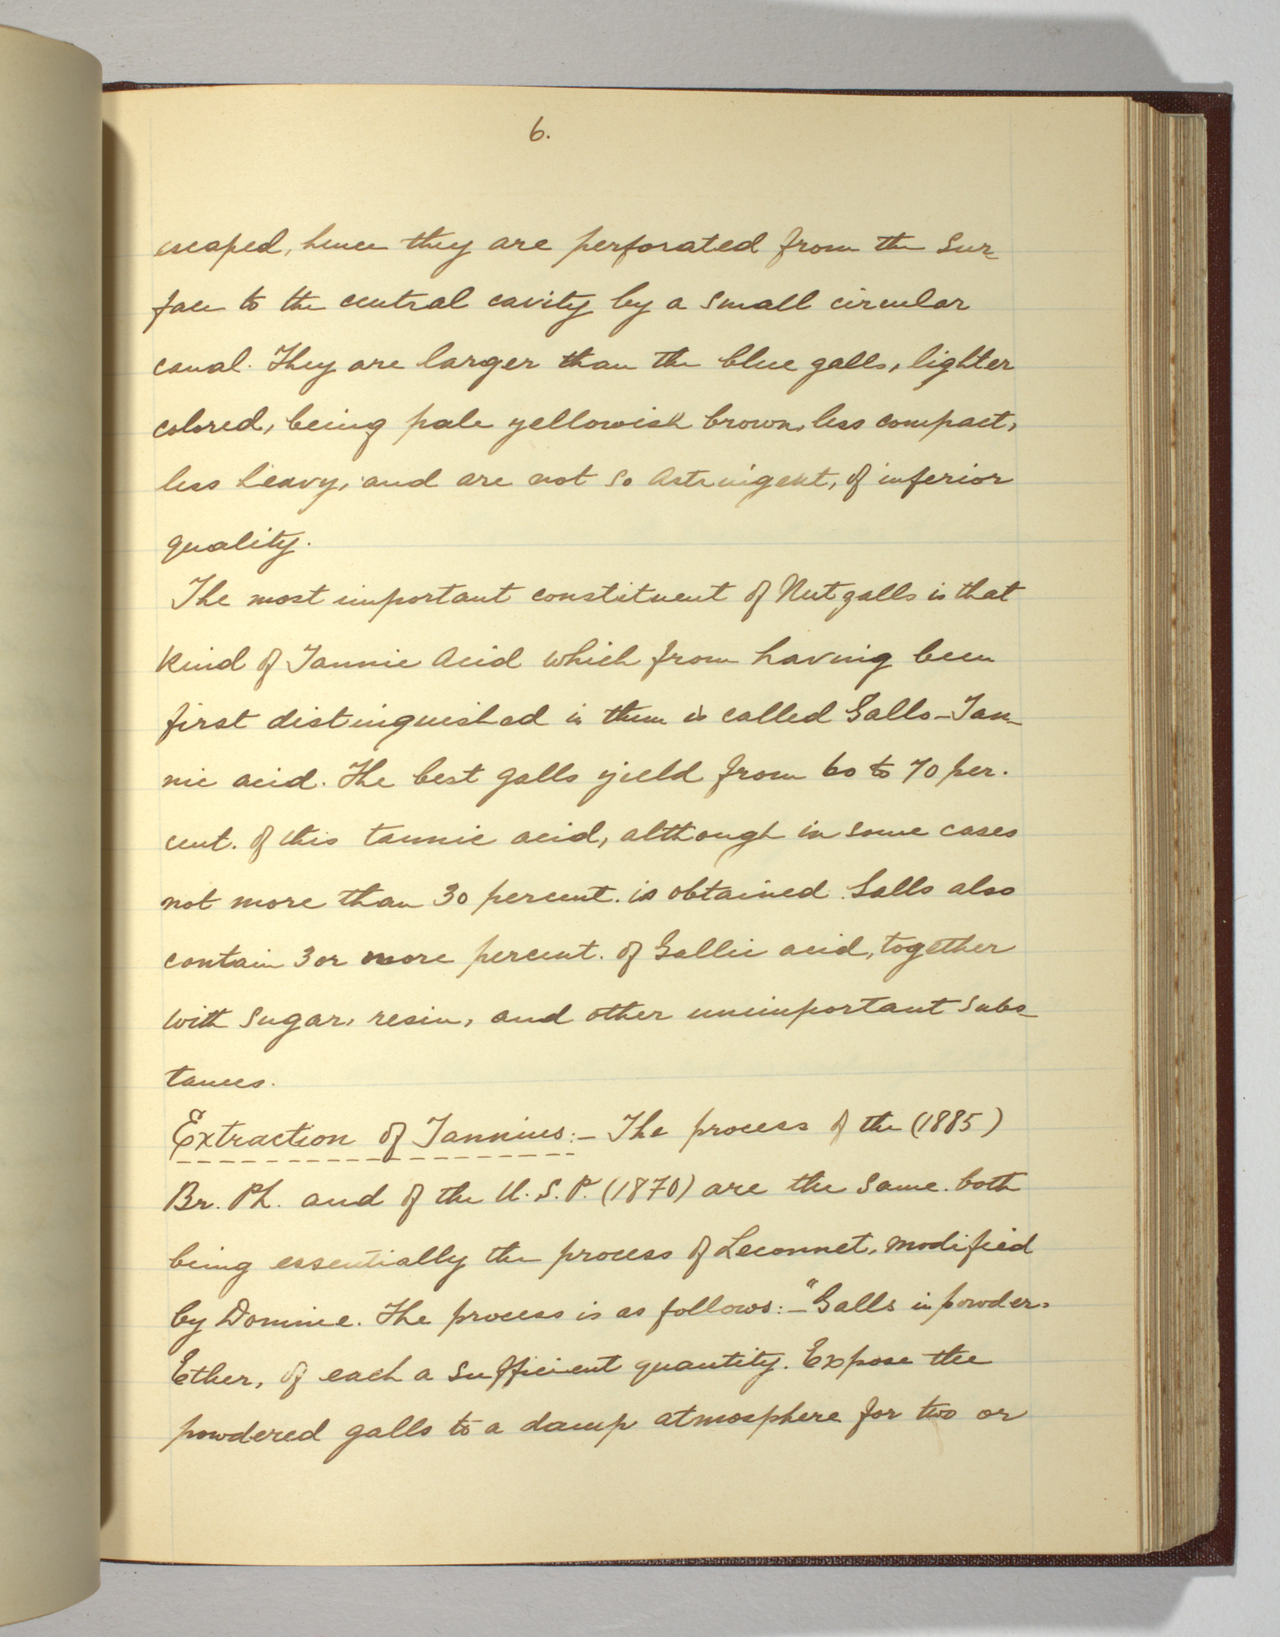 6.
escaped, hence they are perforated from the Sur-
face to the central cavity by a small circular
canal. They are larger than the blue galls, lighter
colored, being pale yellowish brown, less compact,
less heavy, and are not so astringent, of inferior
quality.
The most important constituent of Nutgalls is that
kind of Tannic Acid which from having been
first distinguished in them is called Gallo-Tan-
nic acid. The best galls yield from 60 to 70 per.
cent. of this tannic acid, although in some cases
not more than 30 percent. is obtained. Galls also
contain 3 or more percent. of Gallic acid, together
with sugar, resin, and other unimportant subs-
tances.
Extraction of Tannins:— The process of the (1885)
Br. Ph. and of the U.S.P. (1870) are the same. both
being essentially the process of Leconnet, modified
by Domine. The process is as follows:—"Galls in powder,
Ether, of each a sufficient quantity. Expose the
powdered galls to a damp atmosphere for two or